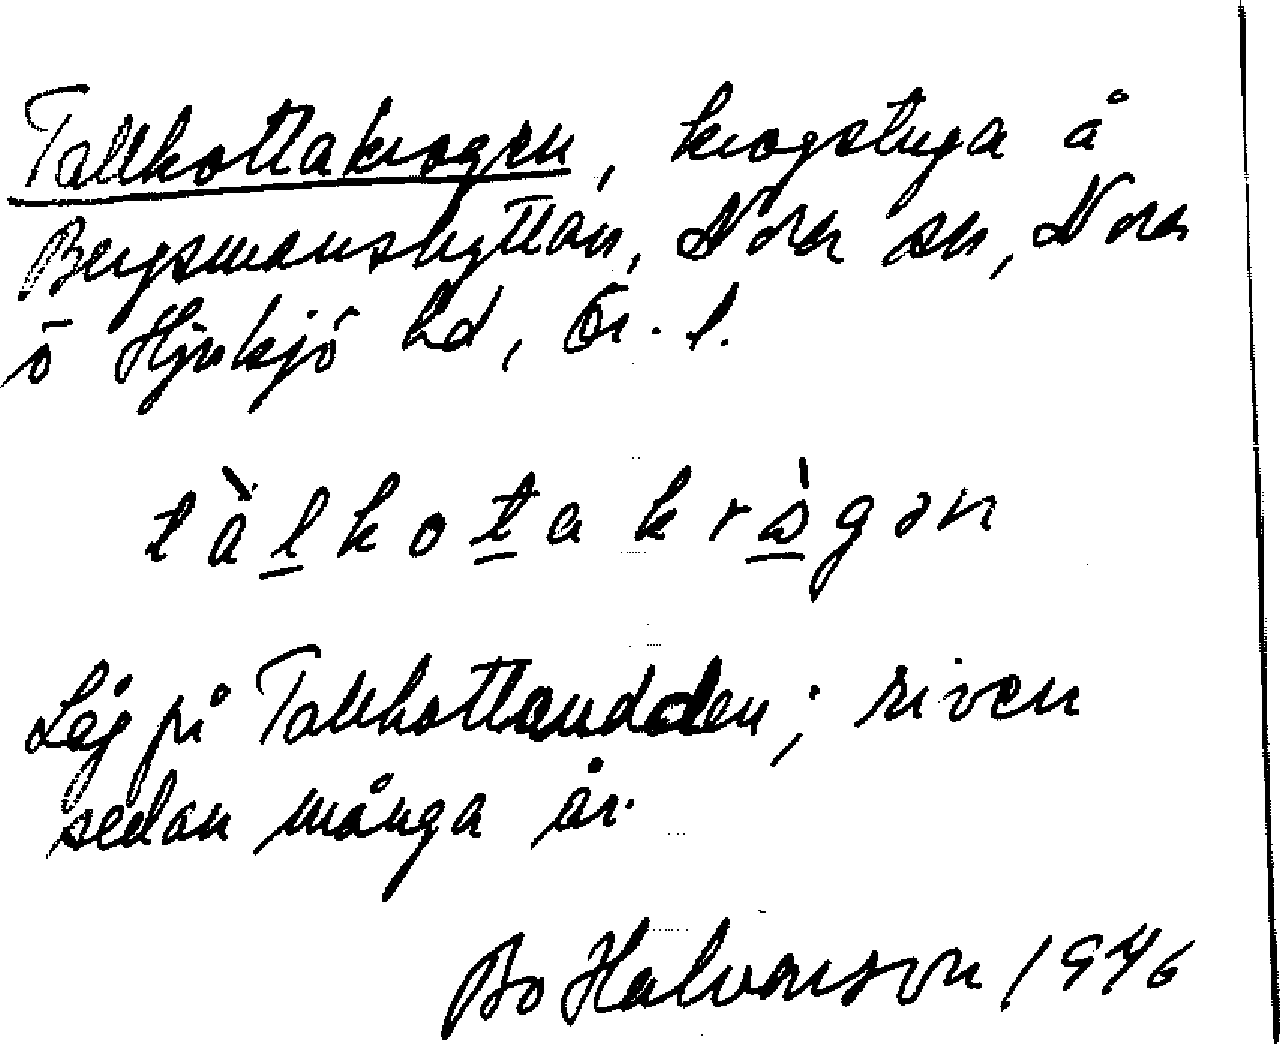 Tallkottakrogen, krogstuga å
Bergsmanshyttan, Nora sn, Nora
o Hjulsjö hd, Ör. l.
tàlkotakrògən
Låg på Tallkottaudden; riven
sedan många år.
Bo Halvarson 1946